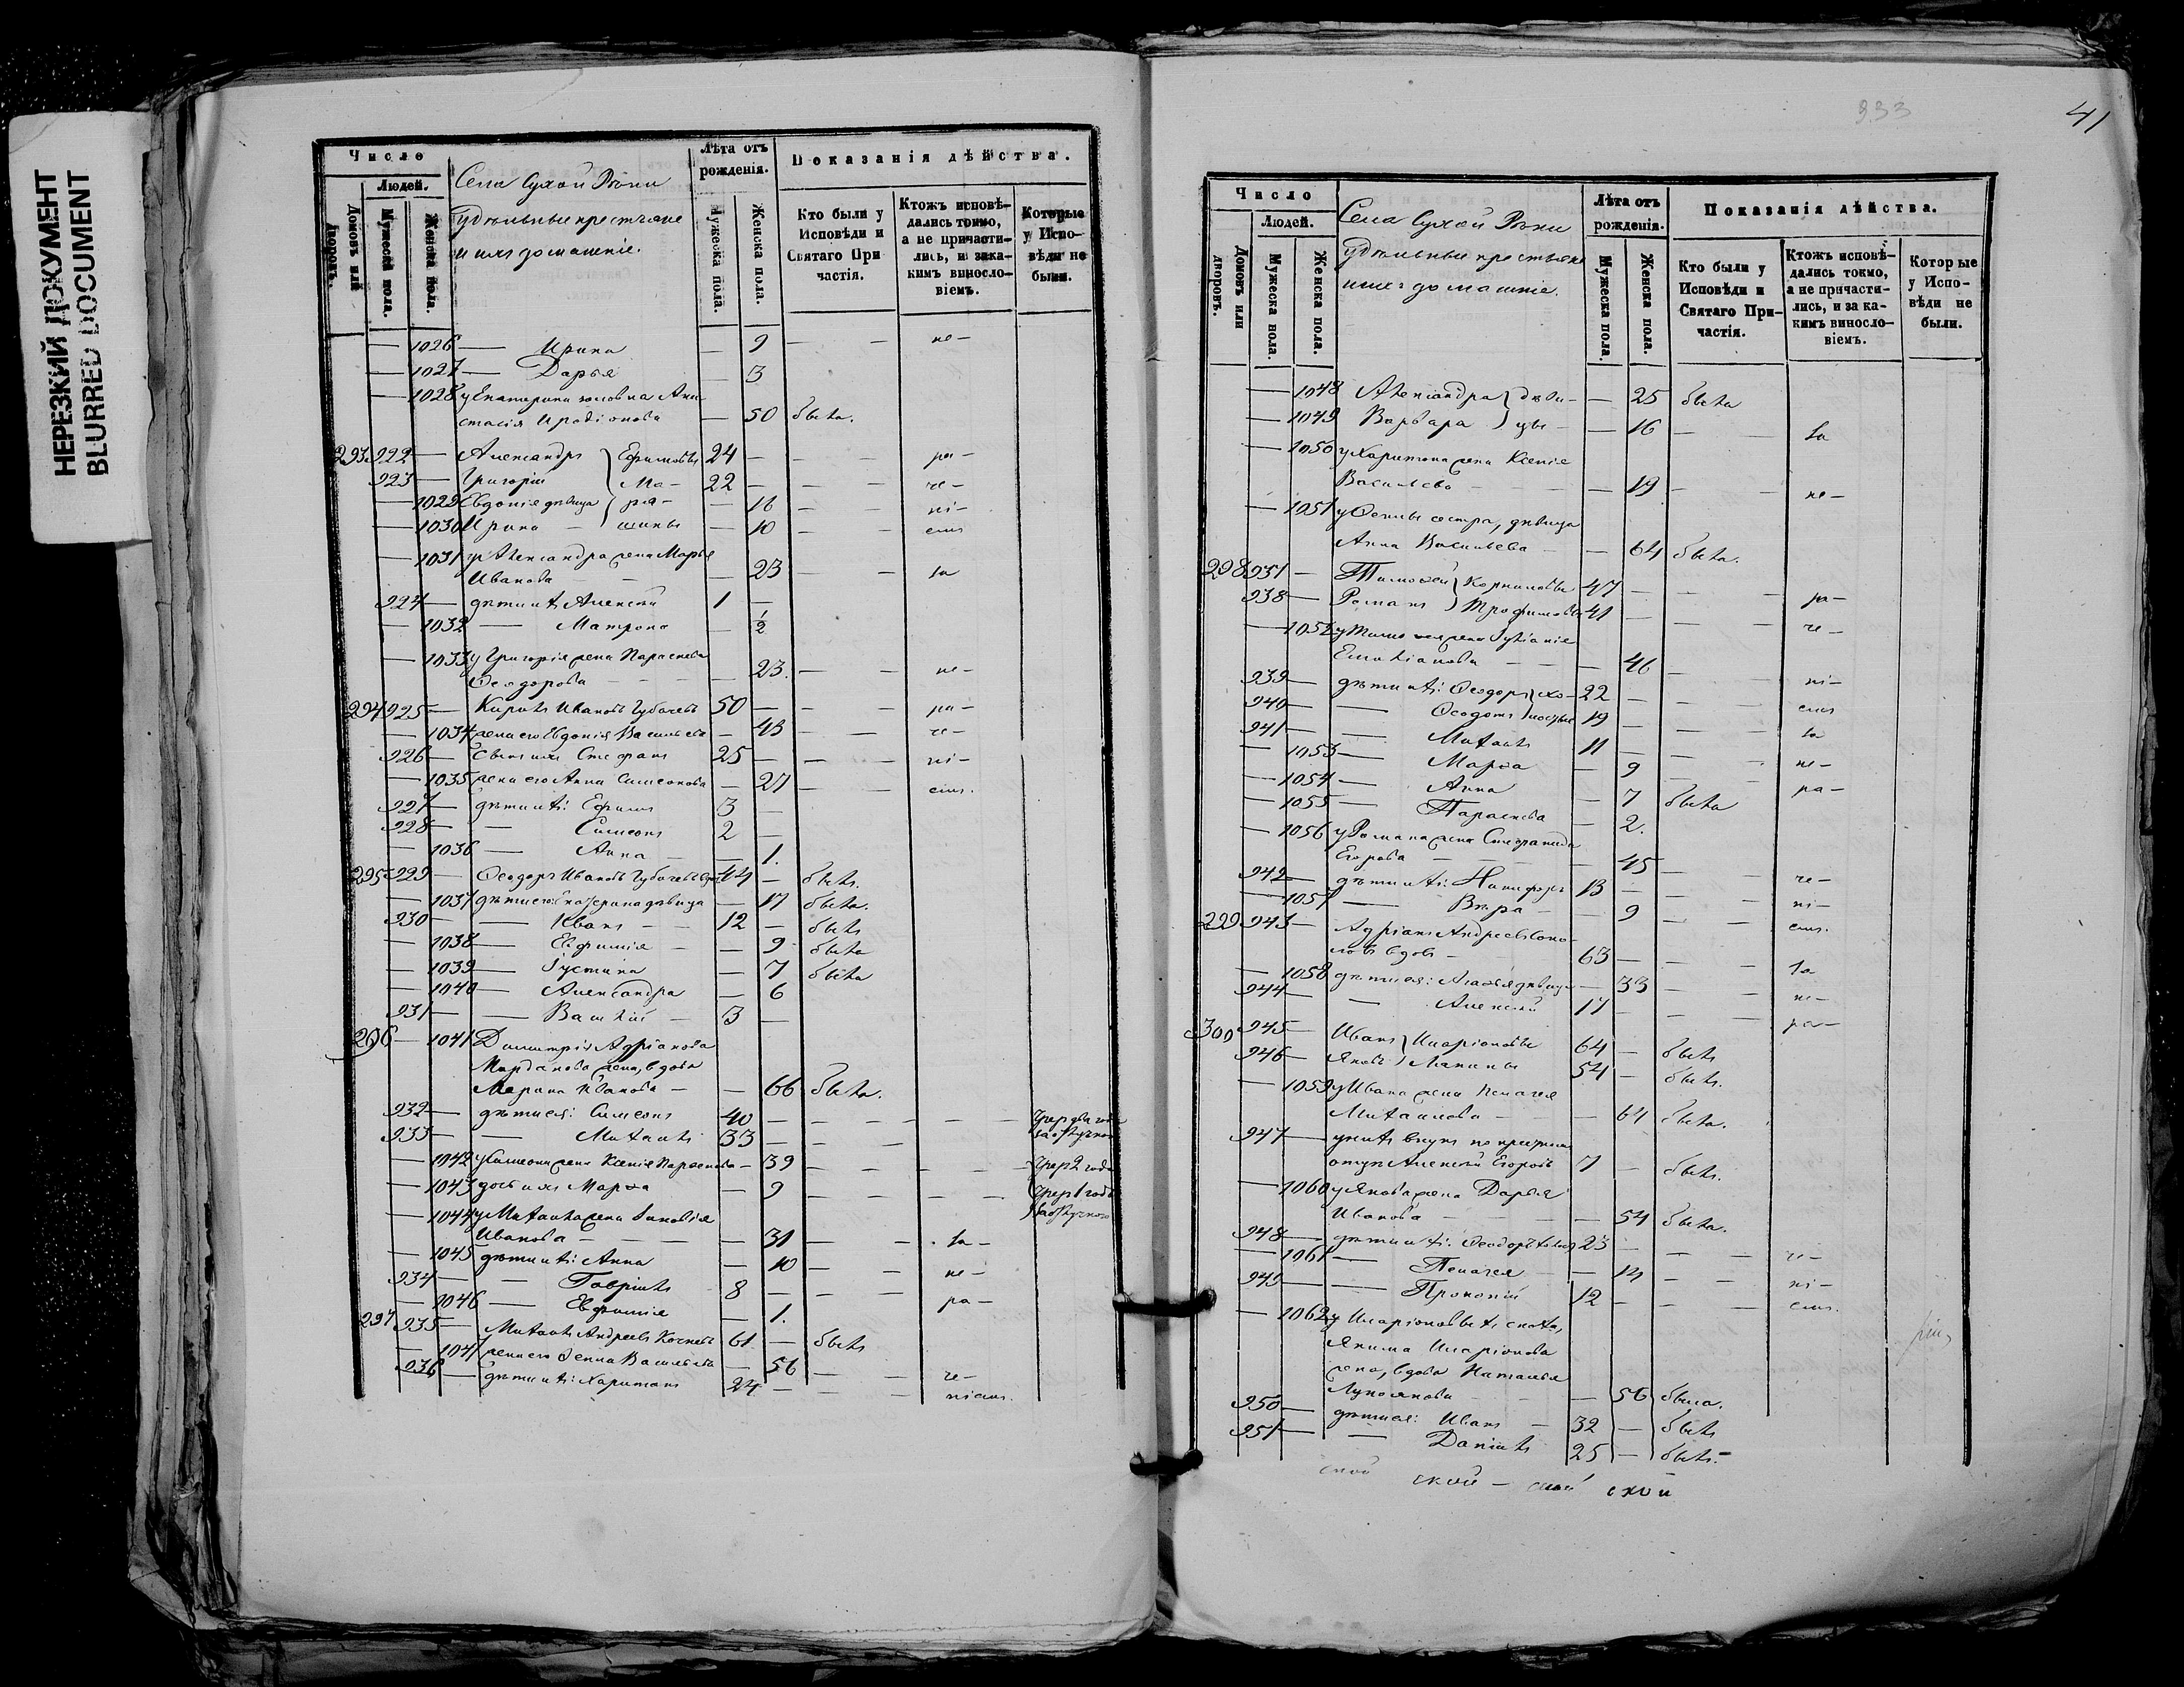 НЕРЕЗКИЙ ДОКУМЕНТ
BLURRED DOCUMENT
Число
Людей.
Домовъ или дворовъ.
Мужеска пола.
Женска пола.
Села Сухой Рѣки
удѣльные крестьяне
и ихъ домашніе.
Лѣта отъ рожденія.
Мужеска пола.
Женска пола.
Показанія дѣйства.
Кто были у Исповѣди и Святаго Причастія.
Ктожъ исповѣдались токмо, а не причастились, и за какимъ винословіемъ.
Которые у Исповѣди не были.
— 1026 — Ирина — 9 — — не —
— 1027 — Дарья — 3
— 1028 у Екатерины золовка Ана
стасія Иродіонова — 50 была.
293 922 — Александръ Ефимовы 24 — — — ра —
923 — Григорій Ма — 22 — — — че —
— 1029 Евдокія дѣвица — 16 — — ні —
— 1030 Ирина — шины — 10 — — емъ
— 1031 у Александра жена Марья
Иванова — — — 23 — — за
924 — дѣти ихъ Алексѣй 1 —
— 1032 — Матрона — 1/2
— 1033 у Григорія жена Параскева
Ѳеодорова — — — 23. — — не —
294 925 — Кирилъ Ивановъ Губачевъ 50 — — — ра —
— 1034 жена его Евдокія Васильева — 43 — — че —
926 — Сынъ ихъ Стефанъ 25 — — — ні —
— 1035 жена его Анна Симеонова — 27 — — емъ.
927 — дѣти ихъ: Ефимъ 3 —
928 — — Симеонъ 2 —
— 1036 — Анна — — 1.
295 929 — Ѳеодоръ Ивановъ Губачевъ 44 — былъ.
— 1037 дѣти его: Екатерина дѣвица — 17 была.
930 — — Иванъ — — 12 — былъ
— 1038 — Евфимія — — 9 была
— 1039 — Іустина — 7 была
— 1040 — Александра — 6
931 — — Василій — 3 —
296 — 1041 Димитрія Адріанова
жена, вдова
Марина Иванова — — 66 была.
932 — дѣти ея: Симеонъ 40 — — — — —
933 — — Михаилъ 33 — — —
— 1042 у Симеона жена Ксенія — 39 — — — — чрез 2 года
— 1043 дочь ихъ Марѳа — 9 — — — —
— 1044 у Михаила жена Зиновія
Иванова — — — — 31 — — за —
— 1045 дѣти ихъ: Анна — 10 — — не —
934 — — Гавріилъ 8 — — — ра —
— 1046 — Евфимія — 1.
297 935 — Михаилъ Андреевъ 61 — былъ
— 1047 жена его Васильева — 56 — — че —
936 — дѣти ихъ: Харитонъ 24 — — ніемъ.
933
41
Число
Людей.
Домовъ или дворовъ.
Мужеска пола.
Женска пола.
Села Сухой Рѣки
удѣльные крестьяне
и ихъ домашніе.
Лѣта отъ рожденія.
Мужеска пола.
Женска пола.
Показанія дѣйства.
Кто были у Исповѣди и Святаго Причастія.
Ктожъ исповѣдались токмо, а не причастились, и за какимъ винословіемъ.
Которые у Исповѣди не были.
— 1048 Александра дѣви — — 25 была
— 1049 Варвара цы — — 16 — — за
— 1050 у Харитона жена Ксенія
Васильева — — — — 19 — — не —
— 1051 сестра, дѣвица
Анна Васильева — — 64 была.
298 937 — Тимоѳей Корниловы 47 — — — ра —
938 — Романъ Трофимовы 41 — — — че —
— 1052 у Тимоѳея жена Іуліанія
Емиліанова — — — 46 — — ні —
939 — дѣти ихъ: Ѳеодоръ хо — 22 — — — емъ
940 — — Ѳеодотъ лостые 19 — — — за
941 — — Михаилъ 11 — — — не —
— 1053 — Марѳа — 9 — — ра —
— 1054 — Анна — 7 была
— 1055 — Параскева — 2.
— 1056 у Романа жена Стефанида
Егорова — — — — 45 — — че —
942 — дѣти ихъ: Никифоръ 13 — — — ні —
— 1057 — Вѣра — — 9 — — емъ.
299 943 — Адріанъ Андреевъ Соко-
ловъ вдовъ — 63 — — — за
— 1058 дѣти ея: Агаѳья дѣвица — 33 — — не —
944 — — Алексѣй 17 — — — ра —
300 945 — Иванъ Иларіоновы 64 — былъ
946 — Яковъ Лапины 54 — былъ.
— 1059 у Ивана жена Пелагея
Михаилова — — 64 была.
947 — у нихъ внукъ
Алексѣй Егоровъ 7 — былъ.
— 1060 у Якова жена Дарья
Иванова — — — — 54 была.
948 — дѣти ихъ: Ѳеодоръ холост 23 — — — че —
— 1061 — Пелагея — — 14 — — ні —
949 — — Прокопій 12 — — — емъ.
— 1062 у Иларіоновыхъ сноха,
Якима Иларіонова
жена, вдова Наталья
Лукоянова — — 56 была.
950 — дѣти ея: Иванъ — 32 — былъ
951 — — Даніилъ 25 — былъ.
ской ской — ской ской